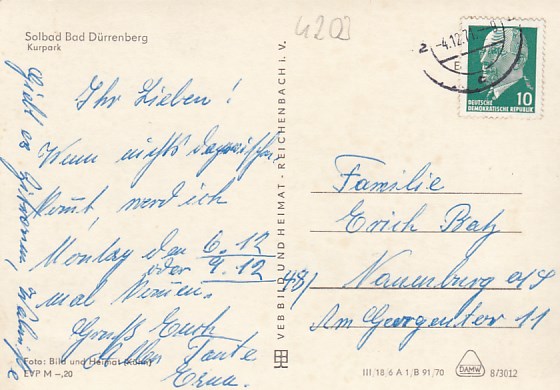 Solbad Bad Dürrenberg
Kurpark
4203
Ihr Lieben!
Wenn nichts dazwischen
kommt, werd ich
Montag den 6.12
oder 9.12
mal kommen.
Gruß Euch
Allen Tante
Erna.
Gibt es
Foto: Bild und Heimat (Kühn)
EVP M –,20
VEB BILD UND HEIMAT · REICHENBACH i. V.
-4.12.71
10
DEUTSCHE
DEMOKRATISCHE REPUBLIK
Familie
Erich Batz
48/ Naumburg a/S
Am Georgentor 11
III/18/6 A 1/B 91/70
DAMW
8/3012